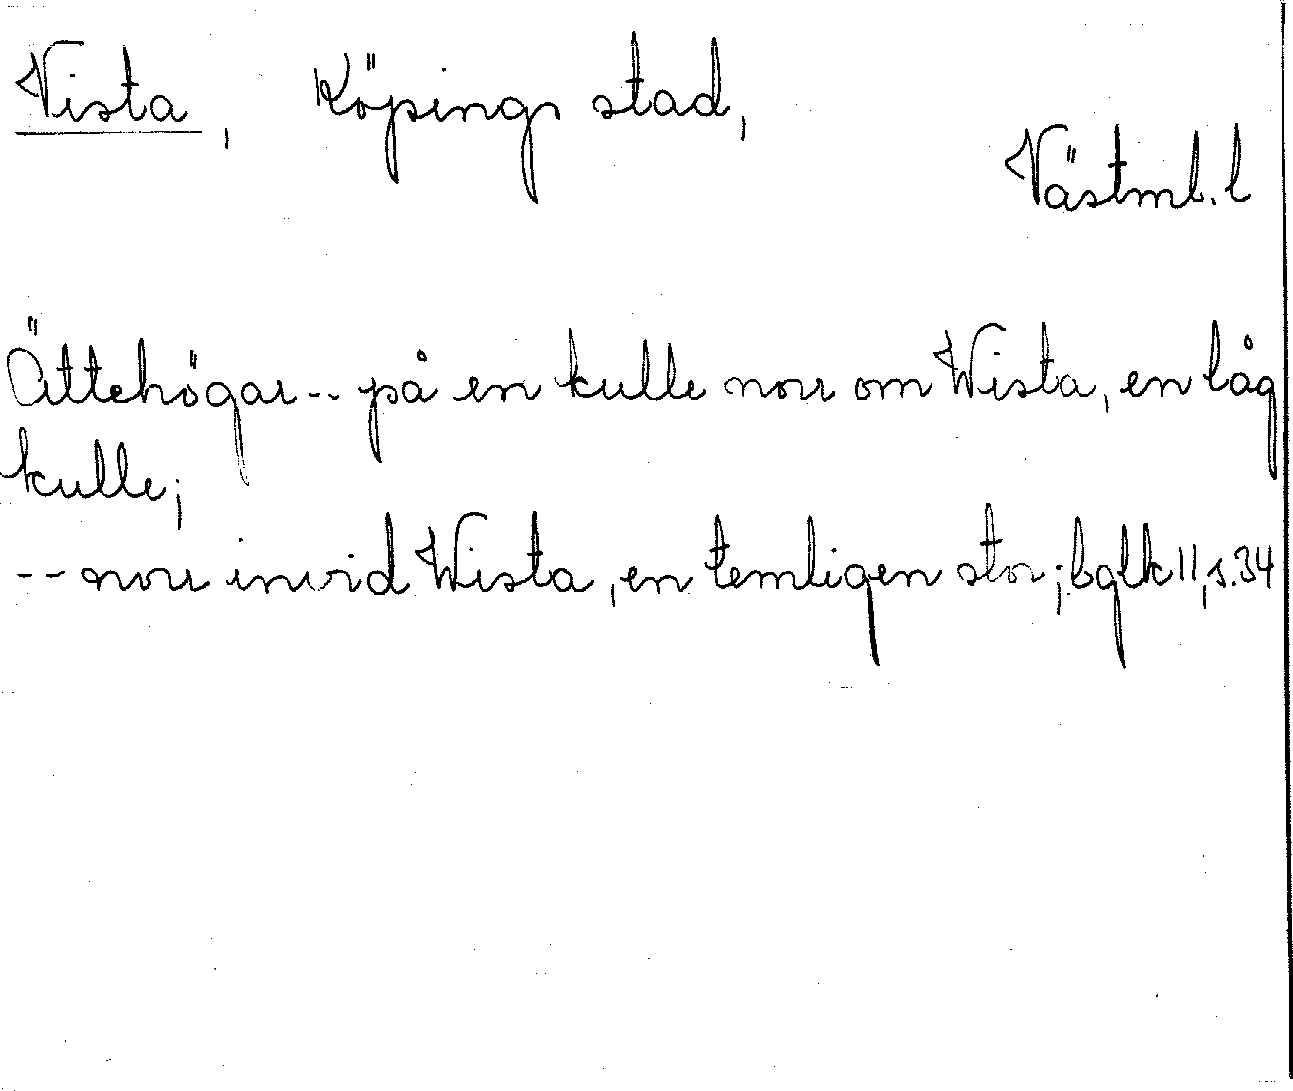 Vista, Köpings stad,
Västml. l
Ättehögar -- på en kulle norr om Wista, en låg
kulle;
-- norr invid Wista, en temligen stor; bglk II, s. 34